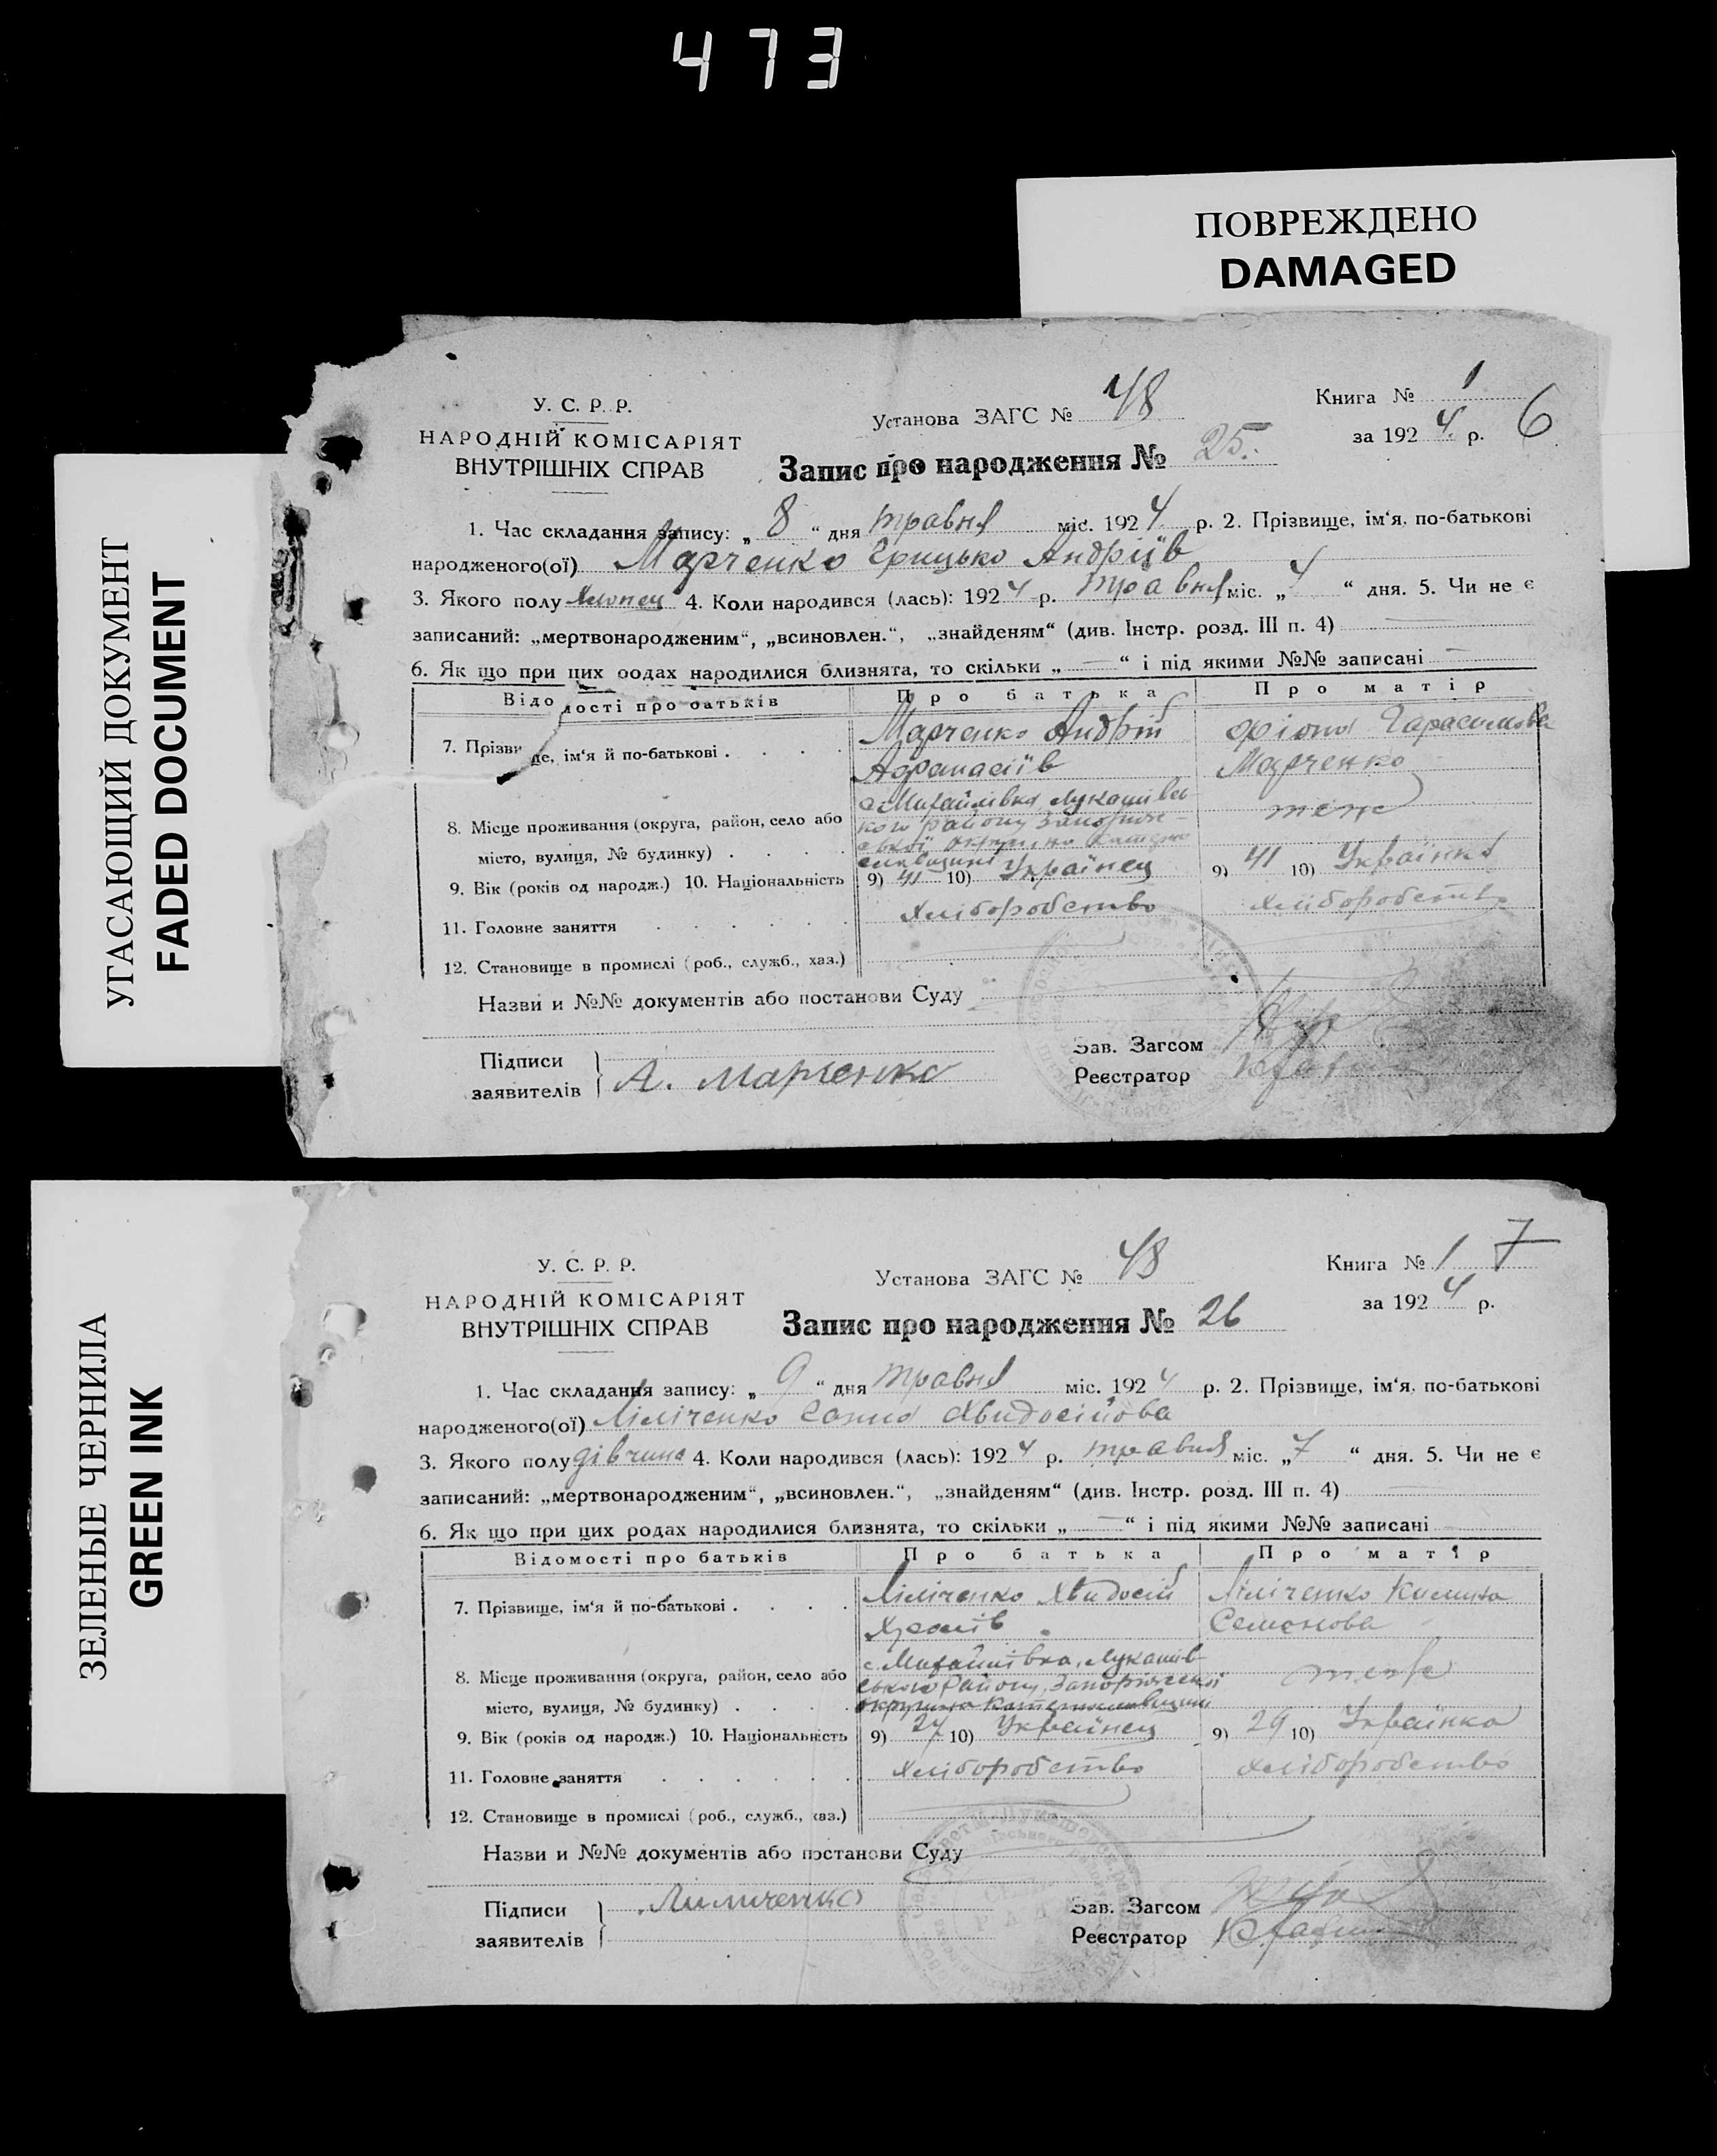 473
ПОВРЕЖДЕНО
DAMAGED
УГАСАЮЩИЙ ДОКУМЕНТ
FADED DOCUMENT
У. С. Р. Р.
НАРОДНІЙ КОМІСАРІЯТ
ВНУТРІШНІХ СПРАВ
Установа ЗАГС № 48
Книга № 1
за 1924 р. 6
Запис про народження № 25.
1. Час складання запису: „ 8 “ дня травня міс. 1924 р. 2. Прізвище, ім‘я, по-батькові
народженого(ої) Марченко Грицько Андріїв
3. Якого полу хлопец 4. Коли народився (лась): 1924 р. травня міс. „ 4 “ дня. 5. Чи не є
записаний: „мертвонародженим“, „всиновлен.“, „знайденям“ (див. Інстр. розд. III п. 4) —
6. Як що при цих родах народилися близнята, то скільки „ — “ і під якими №№ записані —
Відомості про батьків Про батька Про матір
7. Прізвище, ім‘я й по-батькові . . . . Марченко Андрій Гарасимова
Афанасіїв Марченко
с. Михайлівка, Лукашівсь-
8. Місце проживання (округа, район, село або кого району Запоріж- теж
місто, вулиця, № будинку) . . . .
9. Вік (років од народж.) 10. Національність 9) 41 10) Українец 9) 41 10) Українка
11. Головне заняття . . . . . . Хліборобство Хліборобство
12. Становище в промислі (роб., служб., хаз.)
Назви и №№ документів або постанови Суду
Підписи
заявителів А. Марченко
Зав. Загсом
Реєстратор
ЗЕЛЕНЫЕ ЧЕРНИЛА
GREEN INK
У. С. Р. Р.
НАРОДНІЙ КОМІСАРІЯТ
ВНУТРІШНІХ СПРАВ
Установа ЗАГС № 48
Книга № 1 7
за 1924 р.
Запис про народження № 26
1. Час складання запису: „ 9 “ дня травня міс. 1924 р. 2. Прізвище, ім‘я, по-батькові
народженого(ої) Ліліченко Ганна Хвидосійова
3. Якого полу дівчина 4. Коли народився (лась): 1924 р. травня міс. „ 7 “ дня. 5. Чи не є
записаний: „мертвонародженим“, „всиновлен.“, „знайденям“ (див. Інстр. розд. III п. 4) —
6. Як що при цих родах народилися близнята, то скільки „ — “ і під якими №№ записані
Відомості про батьків Про батька Про матір
7. Прізвище, ім‘я й по-батькові . . . . Ліліченко Хвидосій Ліліченко
Семенова
с. Михайлівка, Лукашів-
8. Місце проживання (округа, район, село або ського Району, Запоріжської теж
місто, вулиця, № будинку) . . . . округи на Катеринославщині
9. Вік (років од народж.) 10. Національність 9) 27 10) Українец 9) 29 10) Українка
11. Головне заняття . . . . . . Хліборобство Хліборобство
12. Становище в промислі (роб., служб., хаз.)
Назви и №№ документів або постанови Суду
Підписи
заявителів Лиличенко
Зав. Загсом
Реєстратор